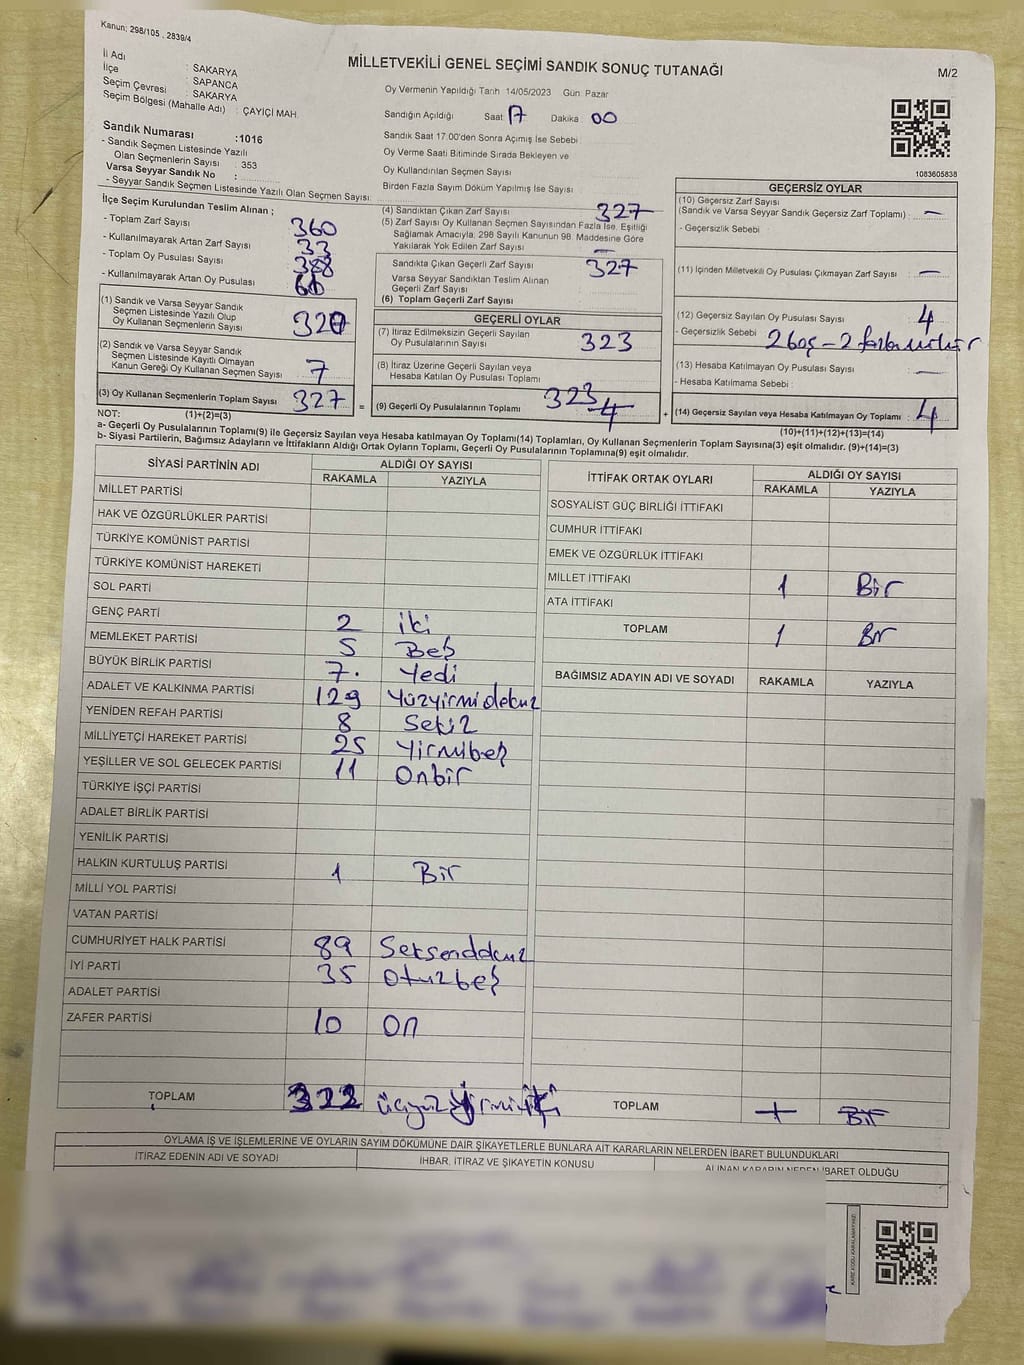 Kanun; 298/105 , 2839/4
MİLLETVEKİLİ GENEL SEÇİMİ SANDIK SONUÇ TUTANAĞI
M/2
İl Adı : SAKARYA
İlçe : SAPANCA
Seçim Çevresi : SAKARYA
Seçim Bölgesi (Mahalle Adı) : ÇAYİÇİ MAH.
Sandık Numarası :1016
- Sandık Seçmen Listesinde Yazılı
Olan Seçmenlerin Sayısı : 353
Varsa Seyyar Sandık No :
- Seyyar Sandık Seçmen Listesinde Yazılı Olan Seçmen Sayısı:
Oy Vermenin Yapıldığı Tarih 14/05/2023 Gün: Pazar
Sandığın Açıldığı Saat 17 Dakika 00
Sandık Saat 17.00'den Sonra Açımış İse Sebebi
Oy Verme Saati Bitiminde Sırada Bekleyen ve
Oy Kullandırılan Seçmen Sayısı
Birden Fazla Sayım Döküm Yapılmış İse Sayısı
1083605838
İlçe Seçim Kurulundan Teslim Alınan ;
- Toplam Zarf Sayısı 360
- Kullanılmayarak Artan Zarf Sayısı 33
- Toplam Oy Pusulası Sayısı 388
- Kullanılmayarak Artan Oy Pusulası
(1) Sandık ve Varsa Seyyar Sandık
Seçmen Listesinde Yazılı Olup
Oy Kullanan Seçmenlerin Sayısı 320
(2) Sandık ve Varsa Seyyar Sandık
Seçmen Listesinde Kayıtlı Olmayan
Kanun Gereği Oy Kullanan Seçmen Sayısı 7
(3) Oy Kullanan Seçmenlerin Toplam Sayısı 327
(1)+(2)=(3)
(4) Sandıktan Çıkan Zarf Sayısı 327
(5) Zarf Sayısı Oy Kullanan Seçmen Sayısından Fazla İse, Eşitliği
Sağlamak Amacıyla; 298 Sayılı Kanunun 98. Maddesine Göre
Yakılarak Yok Edilen Zarf Sayısı —
Sandıkta Çıkan Geçerli Zarf Sayısı 327
Varsa Seyyar Sandıktan Teslim Alınan
Geçerli Zarf Sayısı
(6) Toplam Geçerli Zarf Sayısı
GEÇERLİ OYLAR
(7) İtiraz Edilmeksizin Geçerli Sayılan
Oy Pusulalarının Sayısı 323
(8) İtiraz Üzerine Geçerli Sayılan veya
Hesaba Katılan Oy Pusulası Toplamı
= (9) Geçerli Oy Pusulalarının Toplamı 323 4 +
GEÇERSİZ OYLAR
(10) Geçersiz Zarf Sayısı
(Sandık ve Varsa Seyyar Sandık Geçersiz Zarf Toplamı) : —
- Geçersizlik Sebebi
(11) İçinden Milletvekili Oy Pusulası Çıkmayan Zarf Sayısı : —
(12) Geçersiz Sayılan Oy Pusulası Sayısı : 4
- Geçersizlik Sebebi : 2 boş – 2 fazla mühür
(13) Hesaba Katılmayan Oy Pusulası Sayısı : —
- Hesaba Katılmama Sebebi :
(14) Geçersiz Sayılan veya Hesaba Katılmayan Oy Toplamı : 4
(10)+(11)+(12)+(13)=(14)
NOT:
a- Geçerli Oy Pusulalarının Toplamı(9) ile Geçersiz Sayılan veya Hesaba katılmayan Oy Toplamı(14) Toplamları, Oy Kullanan Seçmenlerin Toplam Sayısına(3) eşit olmalıdır. (9)+(14)=(3)
b- Siyasi Partilerin, Bağımsız Adayların ve İttifakların Aldığı Ortak Oyların Toplamı, Geçerli Oy Pusulalarının Toplamına(9) eşit olmalıdır.
SİYASİ PARTİNİN ADI ALDIĞI OY SAYISI
RAKAMLA YAZIYLA
MİLLET PARTİSİ
HAK VE ÖZGÜRLÜKLER PARTİSİ
TÜRKİYE KOMÜNİST PARTİSİ
TÜRKİYE KOMÜNİST HAREKETİ
SOL PARTİ
GENÇ PARTİ 2 iki
MEMLEKET PARTİSİ 5 Beş
BÜYÜK BİRLİK PARTİSİ 7. Yedi
ADALET VE KALKINMA PARTİSİ 129 Yüzyirmidokuz
YENİDEN REFAH PARTİSİ 8 Sekiz
MİLLİYETÇİ HAREKET PARTİSİ 25 Yirmibeş
YEŞİLLER VE SOL GELECEK PARTİSİ 11 Onbir
TÜRKİYE İŞÇİ PARTİSİ
ADALET BİRLİK PARTİSİ
YENİLİK PARTİSİ
HALKIN KURTULUŞ PARTİSİ 1 Bir
MİLLİ YOL PARTİSİ
VATAN PARTİSİ
CUMHURİYET HALK PARTİSİ 89 Seksendokuz
İYİ PARTİ 35 Otuzbeş
ADALET PARTİSİ
ZAFER PARTİSİ 10 On
TOPLAM 322 üçyüzyirmiiki
İTTİFAK ORTAK OYLARI ALDIĞI OY SAYISI
RAKAMLA YAZIYLA
SOSYALİST GÜÇ BİRLİĞİ İTTİFAKI
CUMHUR İTTİFAKI
EMEK VE ÖZGÜRLÜK İTTİFAKI
MİLLET İTTİFAKI 1 Bir
ATA İTTİFAKI
TOPLAM 1 Bir
BAĞIMSIZ ADAYIN ADI VE SOYADI RAKAMLA YAZIYLA
TOPLAM Bir
OYLAMA İŞ VE İŞLEMLERİNE VE OYLARIN SAYIM DÖKÜMÜNE DAİR ŞİKAYETLERLE BUNLARA AİT KARARLARIN NELERDEN İBARET BULUNDUKLARI
İTİRAZ EDENİN ADI VE SOYADI İHBAR, İTİRAZ VE ŞİKAYETİN KONUSU ALINAN KARARIN NEDEN İBARET OLDUĞU
KARE KODU KARALAMAYINIZ!